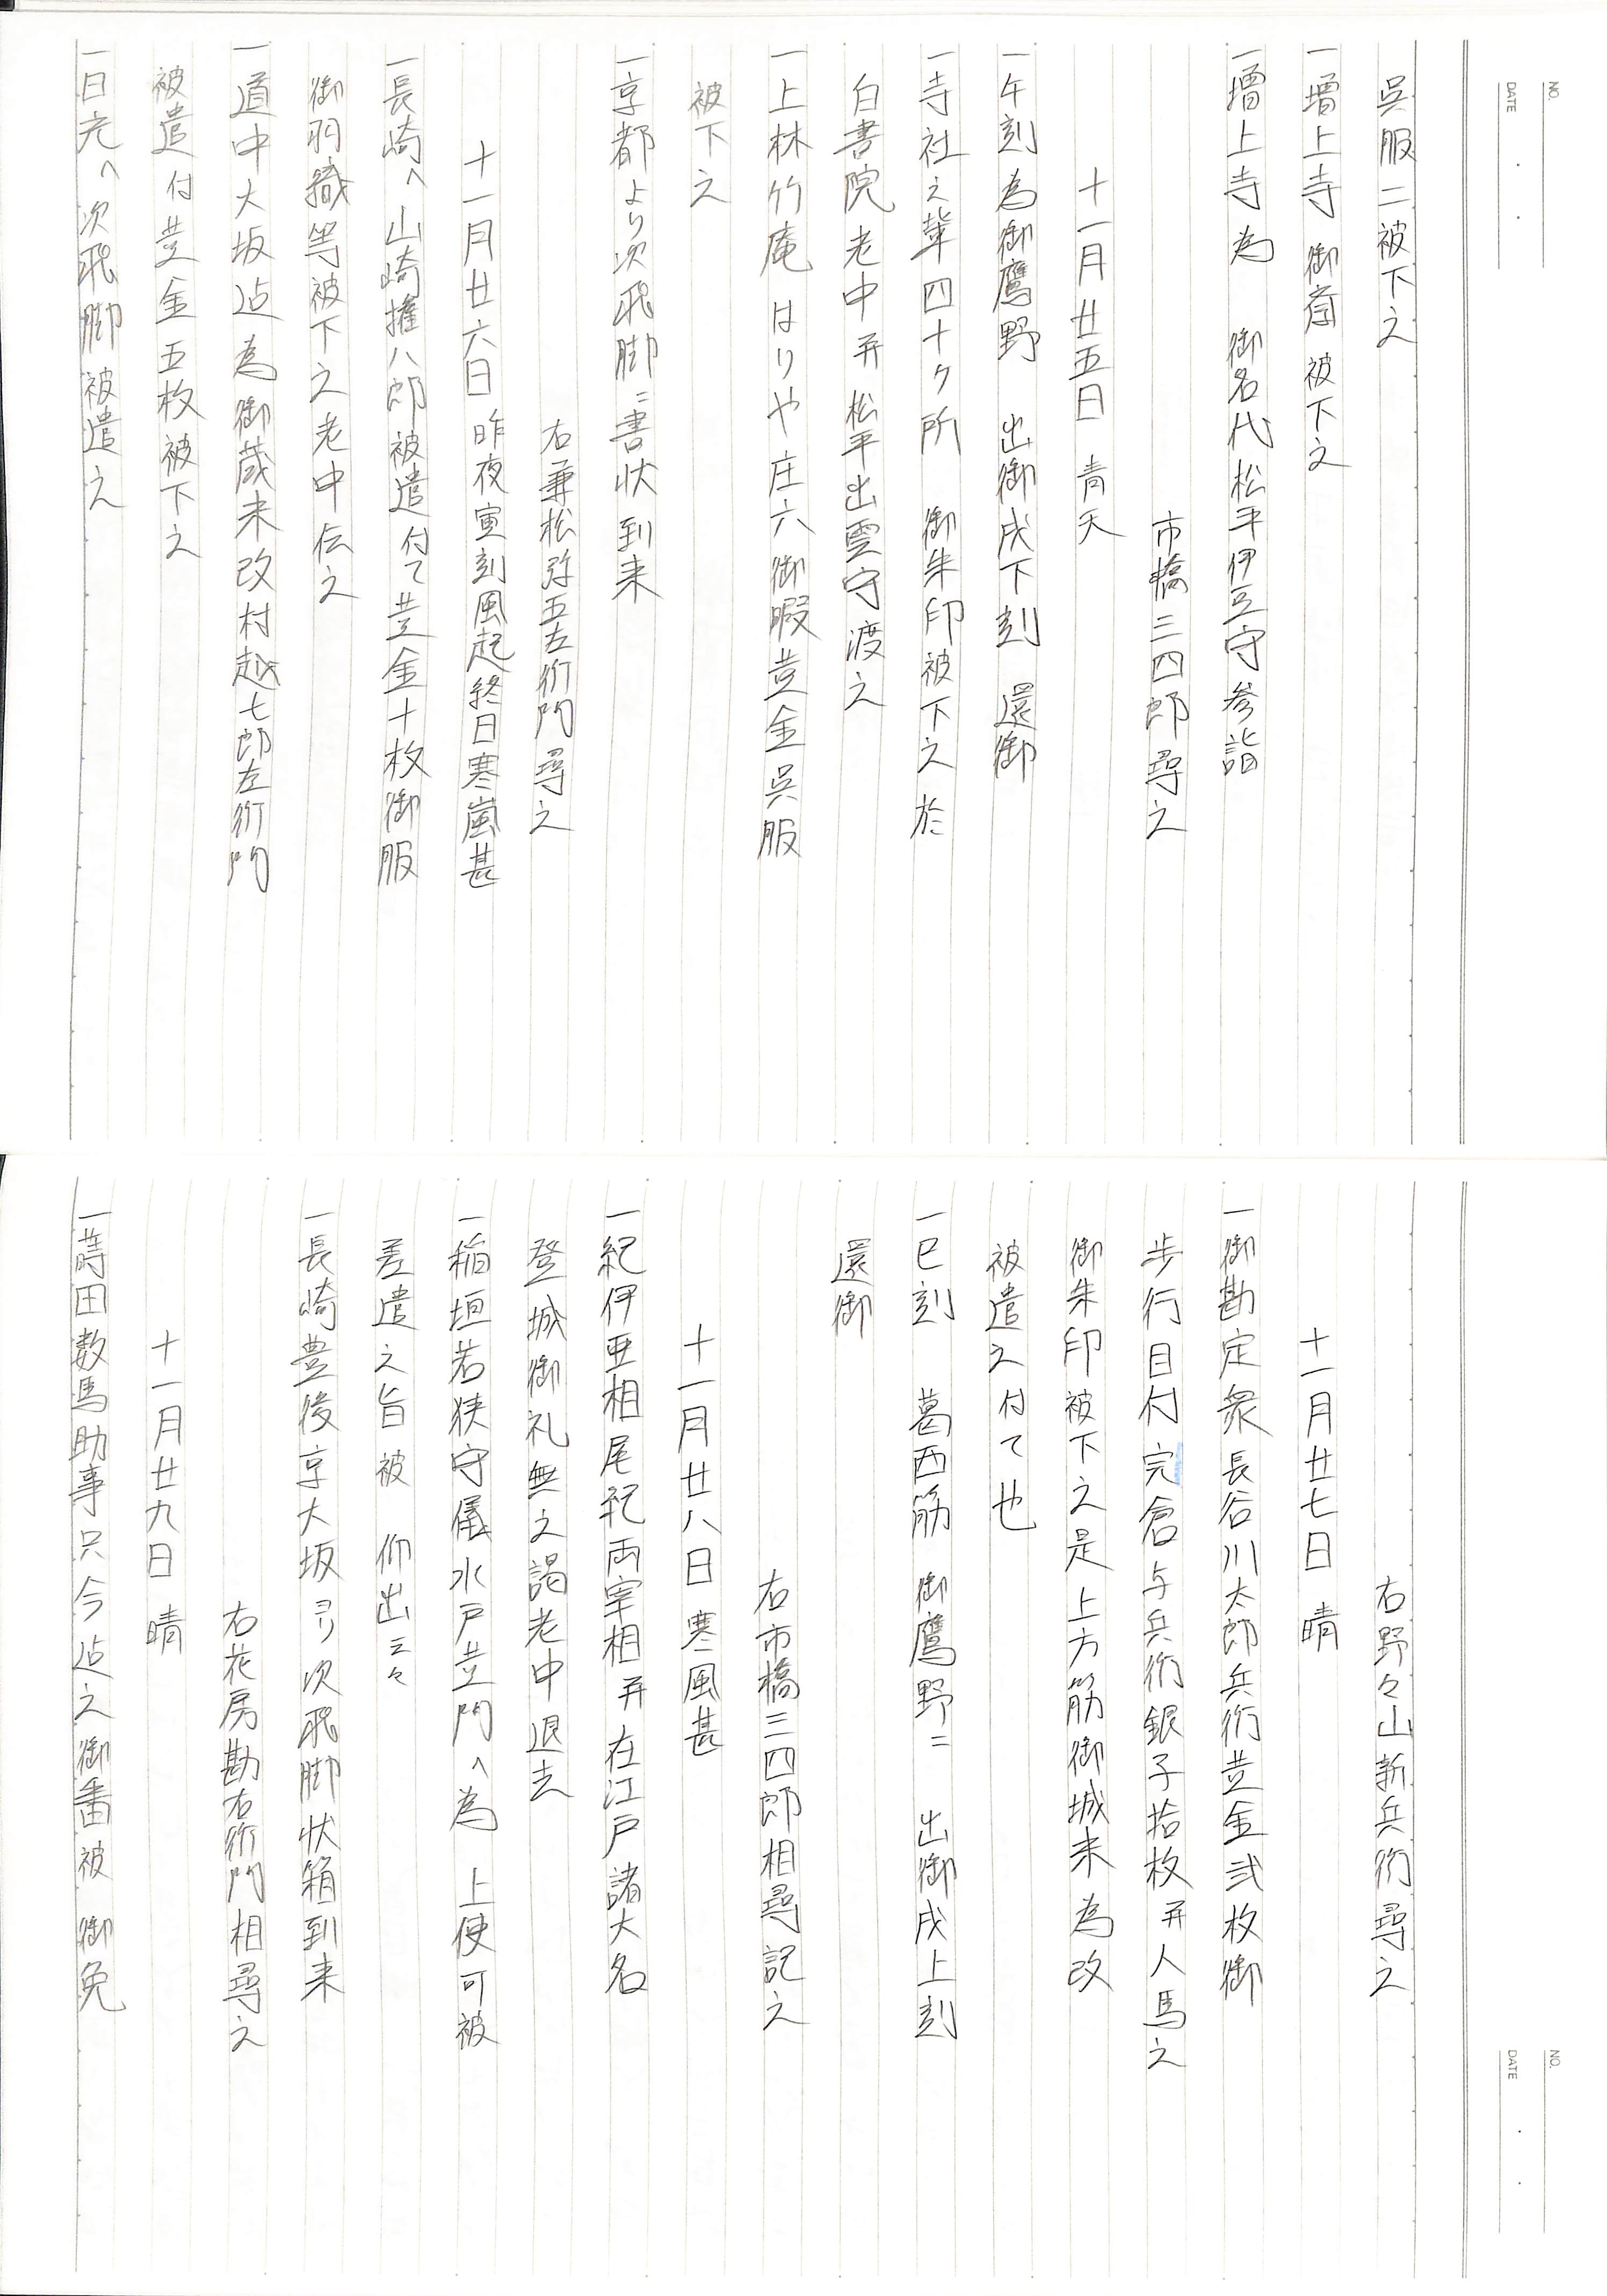 NO.
DATE
呉服二被下之
一増上寺 御斎 被下之
一増上寺為 御名代松平伊豆守参詣
市橋三四郎尋之
十一月廿五日 青天
一午刻為御鷹野 出御戌下刻 還御
一寺社之輩四十ケ所 御朱印被下之於
白書院老中并松平出雲守渡之
一上林竹庵はりや庄六御暇並金呉服
被下之
一京都より次飛脚ニ書状到来
右兼松弥五左衛門尋之
十一月廿六日 昨夜寅刻風起終日寒嵐甚
一長崎へ山崎権八郎被遣付て並金十枚御服
御羽織等被下之老中伝之
一道中大坂迠為御蔵米改村越七郎左衛門
被遣付並金五枚被下之
一日光へ次飛脚被遣之
NO.
DATE
右野々山新兵衛尋之
十一月廿七日 晴
一御勘定衆長谷川太郎兵衛並金弐枚御
歩行目付完倉与兵衛銀子拾枚并人馬之
御朱印被下之是上方筋御城米為改
被遣之付て也
一巳刻 葛西筋 御鷹野ニ 出御戌上刻
還御
右市橋三四郎相尋記之
十一月廿八日 寒風甚
一紀伊亜相尾紀両宰相并在江戸諸大名
登城御礼無之謁老中退去
一稲垣若狭守儀水戸並門へ為 上使可被
差遣之旨被 仰出云々
一長崎豊後京大坂ヨリ次飛脚状箱到来
右花房勘右衛門相尋之
十一月廿九日 晴
一蒔田数馬助事只今迠之御番被 御免